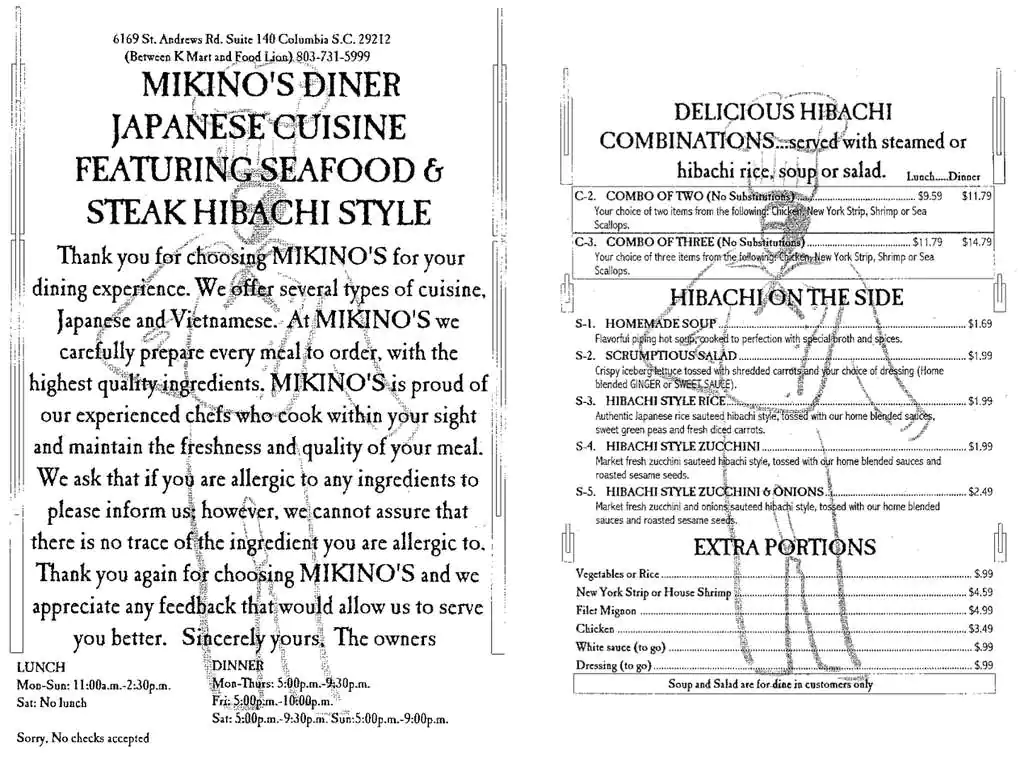 6169 St. Andrews Rd. Suite 140 Columbia S.C. 29212
(Between K Mart and Food Lion) 803-731-5999
MIKINO'S DINER
JAPANESE CUISINE
FEATURING SEAFOOD &
STEAK HIBACHI STYLE
Thank you for choosing MIKINO'S for your
dining experience. We offer several types of cuisine,
Japanese and Vietnamese. At MIKINO'S we
carefully prepare every meal to order, with the
highest quality ingredients. MIKINO'S is proud of
our experienced chefs who cook within your sight
and maintain the freshness and quality of your meal.
We ask that if you are allergic to any ingredients to
please inform us; however, we cannot assure that
there is no trace of the ingredient you are allergic to.
Thank you again for choosing MIKINO'S and we
appreciate any feedback that would allow us to serve
you better. Sincerely yours, The owners
LUNCH
Mon-Sun: 11:00a.m.-2:30p.m.
Sat: No lunch
DINNER
Mon-Thurs: 5:00p.m.-9:30p.m.
Fri: 5:00p.m.-10:00p.m.
Sat: 5:00p.m.-9:30p.m. Sun:5:00p.m.-9:00p.m.
Sorry, No checks accepted
DELICIOUS HIBACHI
COMBINATIONS...served with steamed or
hibachi rice, soup or salad. Lunch.....Dinner
C-2. COMBO OF TWO (No Substitutions) $9.59 $11.79
Your choice of two items from the following: Chicken, New York Strip, Shrimp or Sea
Scallops.
C-3. COMBO OF THREE (No Substitutions) $11.79 $14.79
Your choice of three items from the following: Chicken, New York Strip, Shrimp or Sea
Scallops.
HIBACHI ON THE SIDE
S-1. HOMEMADE SOUP $1.69
Flavorful piping hot soup, cooked to perfection with special broth and spices.
S-2. SCRUMPTIOUS SALAD $1.99
Crispy iceberg lettuce tossed with shredded carrots and your choice of dressing (Home
blended GINGER or SWEET SAUCE).
S-3. HIBACHI STYLE RICE $1.99
Authentic Japanese rice sauteed hibachi style, tossed with our home blended sauces,
sweet green peas and fresh diced carrots.
S-4. HIBACHI STYLE ZUCCHINI $1.99
Market fresh zucchini sauteed hibachi style, tossed with our home blended sauces and
roasted sesame seeds.
S-5. HIBACHI STYLE ZUCCHINI & ONIONS $2.49
Market fresh zucchini and onions sauteed hibachi style, tossed with our home blended
sauces and roasted sesame seeds.
EXTRA PORTIONS
Vegetables or Rice $.99
New York Strip or House Shrimp $4.59
Filet Mignon $4.99
Chicken $3.49
White sauce (to go) $.99
Dressing (to go) $.99
Soup and Salad are for dine in customers only